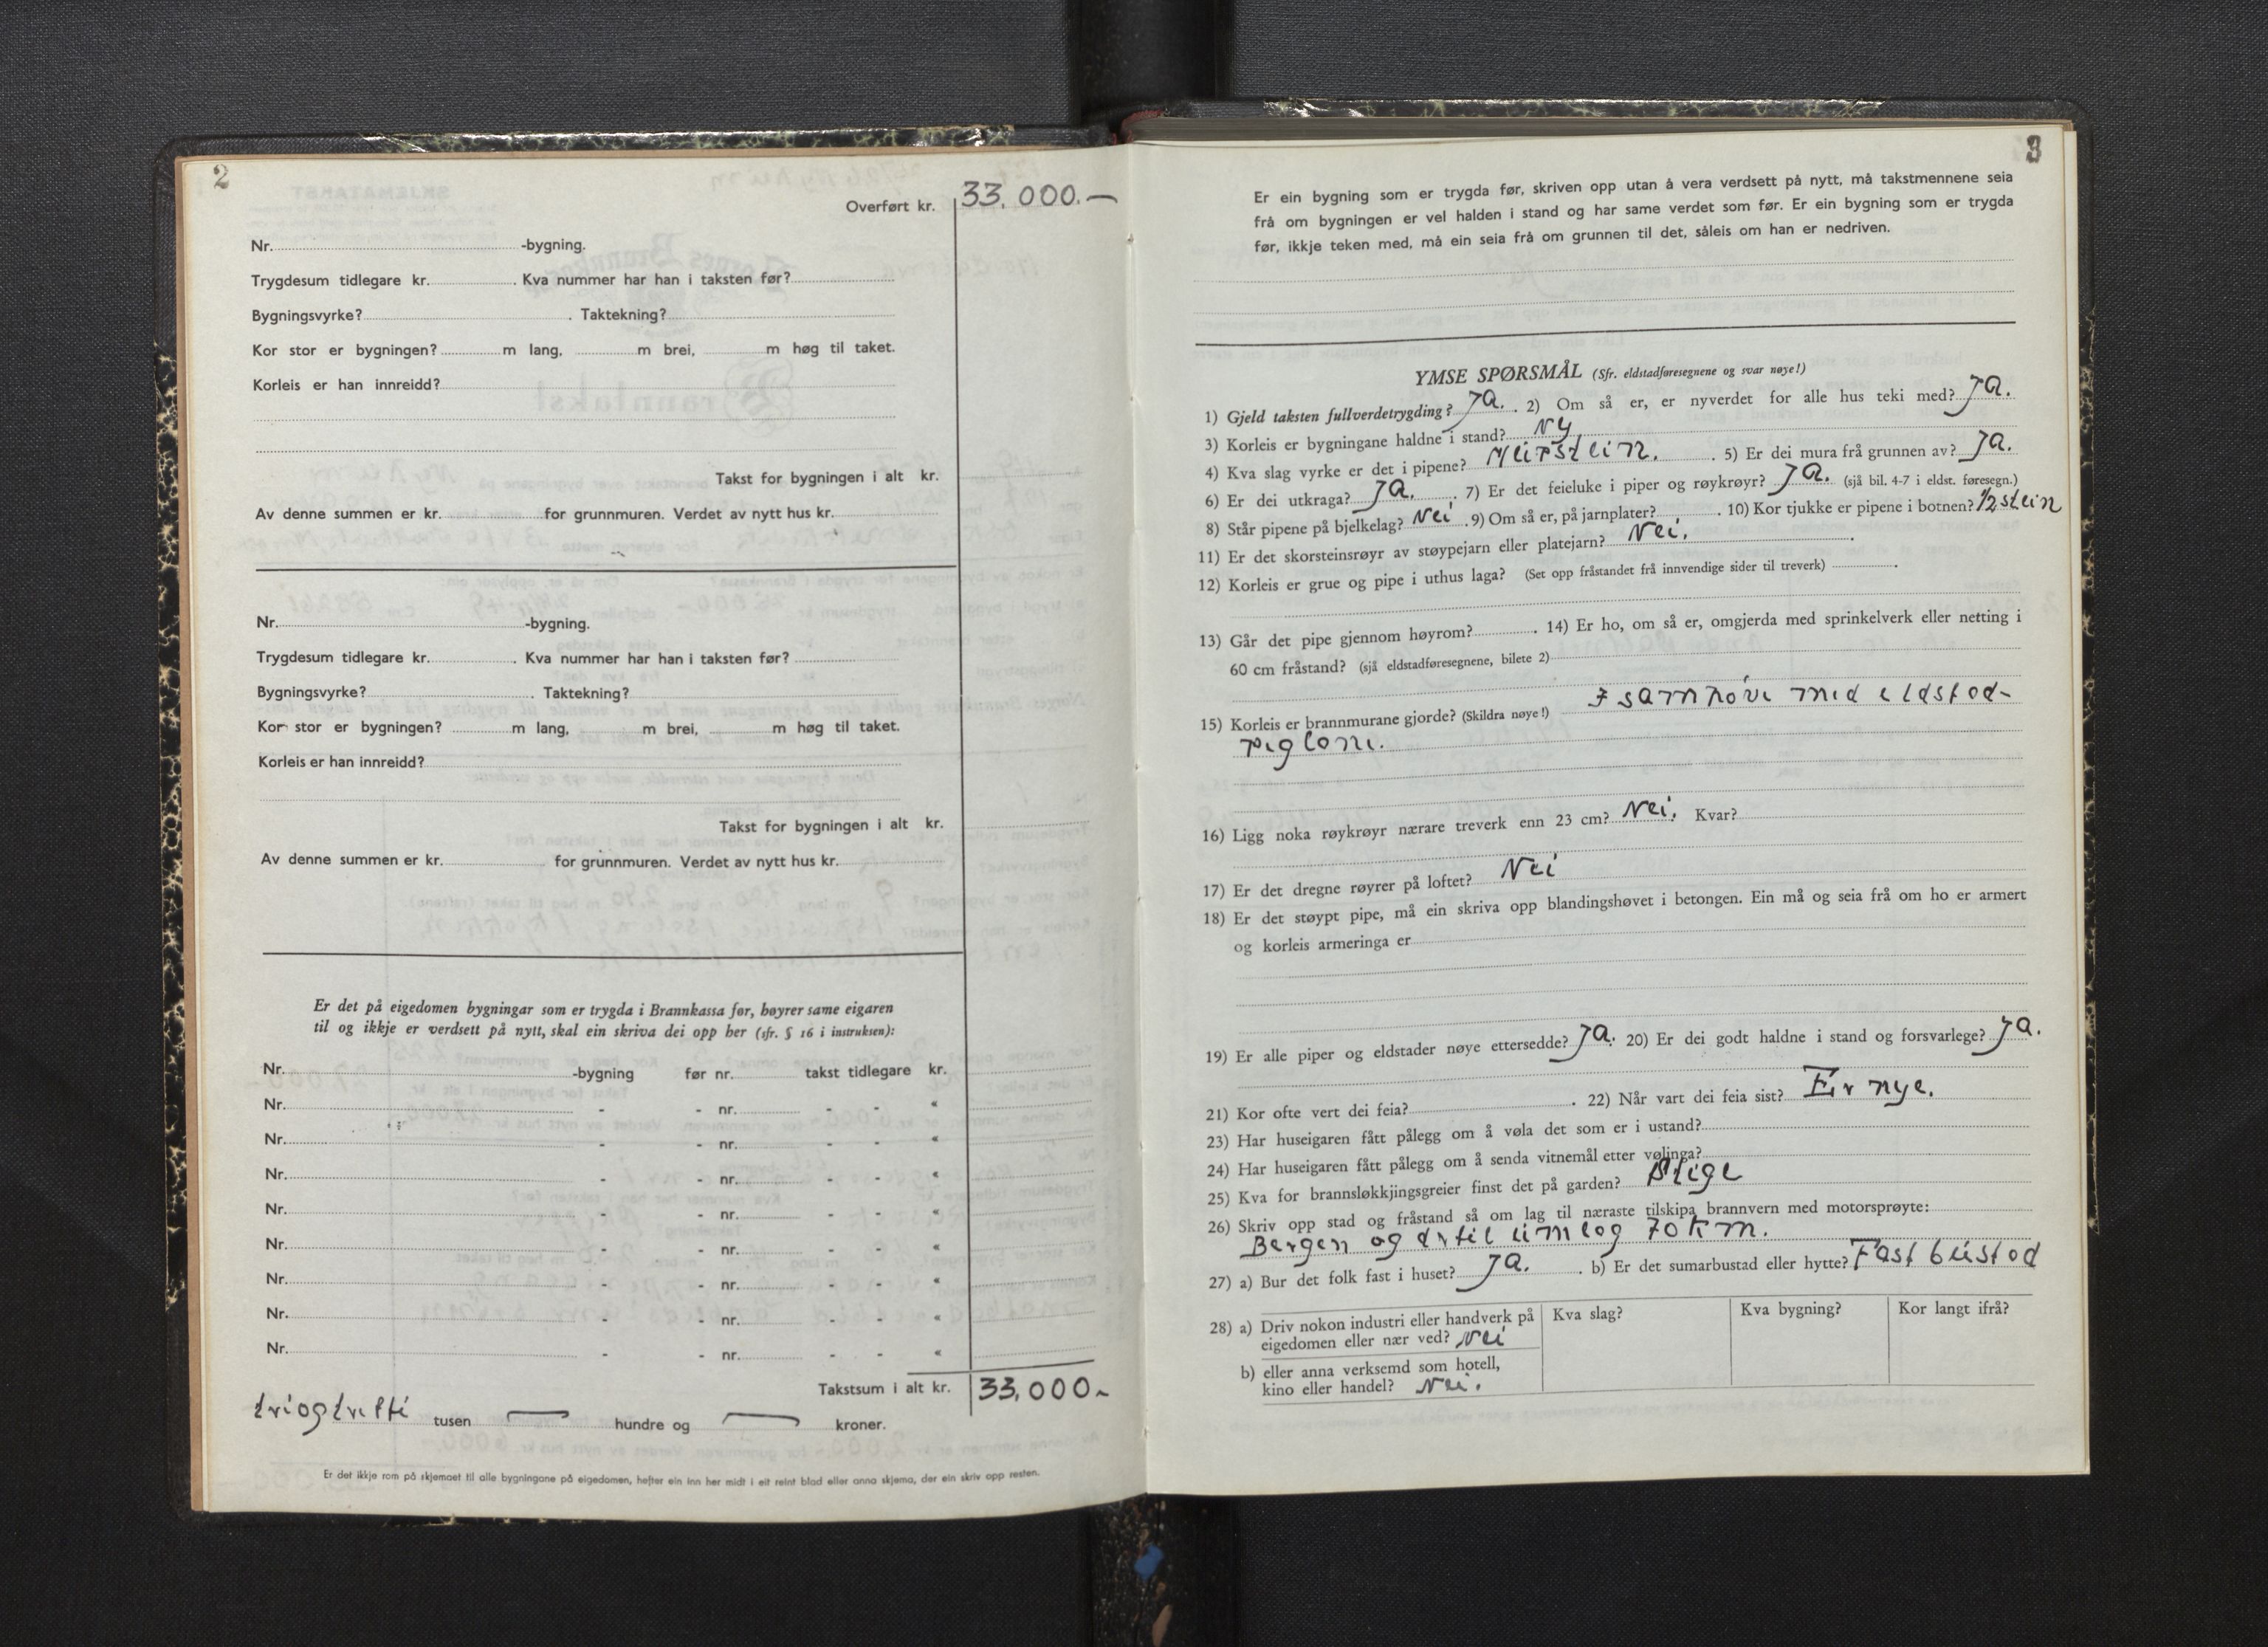 2
Overført kr. 33.000.—
Nr. -bygning.
Trygdesum tidlegare kr. . Kva nummer har han i taksten før?
Bygningsvyrke? . Taktekning?
Kor stor er bygningen? m lang, m brei, m høg til taket.
Korleis er han innreidd?
Takst for bygningen i alt kr.
Av denne summen er kr. for grunnmuren. Verdet av nytt hus kr.
Nr. -bygning.
Trygdesum tidlegare kr. . Kva nummer har han i taksten før?
Bygningsvyrke? . Taktekning?
Kor stor er bygningen? m lang, m brei, m høg til taket.
Korleis er han innreidd?
Takst for bygningen i alt kr.
Av denne summen er kr. for grunnmuren. Verdet av nytt hus kr.
Er det på eigedomen bygningar som er trygda i Brannkassa før, høyrer same eigaren
til og ikkje er verdsett på nytt, skal ein skriva dei opp her (sfr. § 16 i instruksen):
Nr. -bygning før nr. takst tidlegare kr.
Nr. - - nr. - - «
Nr. - - nr. - - «
Nr. - - nr. - - «
Nr. - - nr. - - «
Nr. - - nr. - - «
Nr. - - nr. - - «
Nr. - - nr. - - «
Nr. - - nr. - - «
Takstsum i alt kr. 33,000-
triogtretti tusen — hundre og — kroner.
Er det ikkje rom på skjemaet til alle bygningane på eigedomen, hefter ein inn her midt i eit reint blad eller anna skjema, der ein skriv opp resten.
3
Er ein bygning som er trygda før, skriven opp utan å vera verdsett på nytt, må takstmennene seia
frå om bygningen er vel halden i stand og har same verdet som før. Er ein bygning som er trygda
før, ikkje teken med, må ein seia frå om grunnen til det, såleis om han er nedriven.
YMSE SPØRSMÅL (Sfr. eldstadføresegnene og svar nøye!)
1) Gjeld taksten fullverdetrygding? Ja. . 2) Om så er, er nyverdet for alle hus teki med? Ja.
3) Korleis er bygningane haldne i stand? Ny
4) Kva slag vyrke er det i pipene? Murstein. . 5) Er dei mura frå grunnen av? Ja.
6) Er dei utkraga? Ja. . 7) Er det feieluke i piper og røykrøyr? Ja. (sjå bil. 4-7 i eldst. føresegn.)
8) Står pipene på bjelkelag? Nei . 9) Om så er, på jarnplater? . 10) Kor tjukke er pipene i botnen? 1/2 stein
11) Er det skorsteinsrøyr av støypejarn eller platejarn? Nei. .
12) Korleis er grue og pipe i uthus laga? (Set opp fråstandet frå innvendige sider til treverk) .
13) Går det pipe gjennom høyrom? . 14) Er ho, om så er, omgjerda med sprinkelverk eller netting i
60 cm fråstand? (sjå eldstadføresegnene, bilete 2)
15) Korleis er brannmurane gjorde? (Skildra nøye!) I samhøve med eldstod-
reglom.
16) Ligg noka røykrøyr nærare treverk enn 23 cm? Nei. Kvar?
17) Er det dregne røyrer på loftet? Nei
18) Er det støypt pipe, må ein skriva opp blandingshøvet i betongen. Ein må og seia frå om ho er armert
og korleis armeringa er
19) Er alle piper og eldstader nøye ettersedde? Ja. 20) Er dei godt haldne i stand og forsvarlege? Ja.
21) Kor ofte vert dei feia? . 22) Når vart dei feia sist? Er nye.
23) Har huseigaren fått pålegg om å vøla det som er i ustand?
24) Har huseigaren fått pålegg om å senda vitnemål etter vølinga?
25) Kva for brannsløkkjingsgreier finst det på garden? Stige
26) Skriv opp stad og fråstand så om lag til næraste tilskipa brannvern med motorsprøyte:
Bergen og dertil umlog 70 km.
27) a) Bur det folk fast i huset? Ja. . b) Er det sumarbustad eller hytte? Fast bustod
28) a) Driv nokon industri eller handverk på
eigedomen eller nær ved? Nei
Kva slag?
Kva bygning?
Kor langt ifrå?
b) eller anna verksemd som hotell,
kino eller handel? Nei.